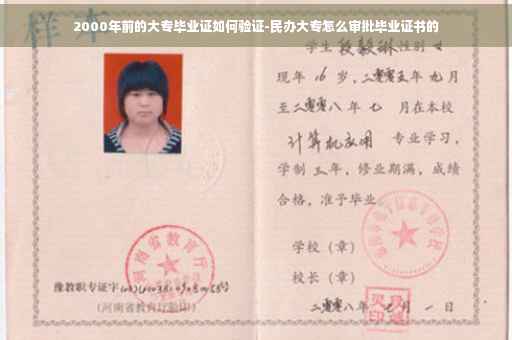 样本
2000年前的大专毕业证如何验证-民办大专怎么审批毕业证书的
学生段毅琳性别女
现年16岁,二零零五年九月
至二零零八年七月在本校
计算机应用专业学习,
学制三年,修业期满,成绩
合格,准予毕业。
学校(章)
校长(章)
二零零八年七月一日
河南省教育厅
豫教职专证字
(河南省教育厅验印)